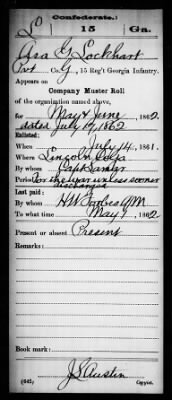 Confederate.
L 15 Ga.
Asa G. Lockhart
Pvt Co. G, 15 Reg't Georgia Infantry.
Appears on
Company Muster Roll
of the organization named above,
for May & June, 1862.
dated July 17, 1862
Enlisted:
When July 14, 1861.
Where Lincoln
By Capt
Period for the war unless sooner
discharged
Last paid:
By H W Forbes AQM
To what time May 1, 1862
Present or absent Present
Remarks:
Book mark:
J S Austin
(642) Copyist.